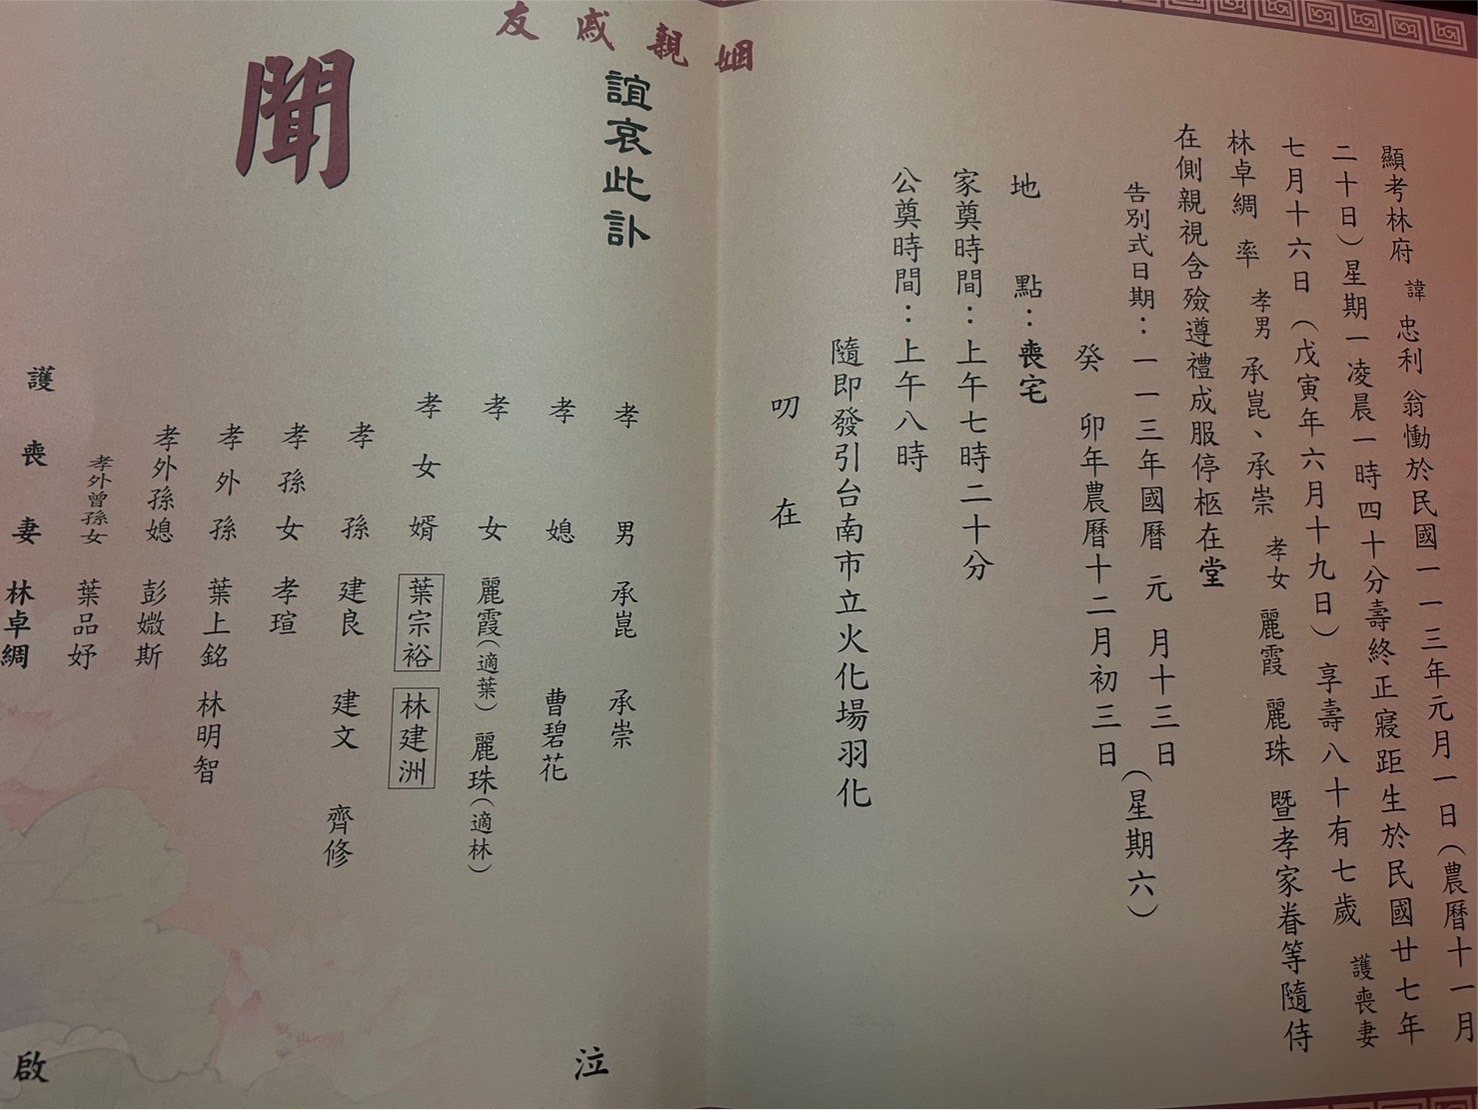 顯考林府 諱 忠利 翁慟於民國一一三年元月一日（農曆十一月
二十日）星期一凌晨一時四十分壽終正寢距生於民國廿七年
七月十六日（戊寅年六月十九日）享壽八十有七歲 護喪妻
林卓綢 率 孝男 承崑、承崇 孝女 麗霞 麗珠 暨孝家眷等隨侍
在側親視含殮遵禮成服停柩在堂
告別式日期：一一三年國曆 元 月十三日
癸 卯年農曆十二月初三日（星期六）
地 點：喪宅
家奠時間：上午七時二十分
公奠時間：上午八時
隨即發引台南市立火化場羽化
叨 在
姻親戚友
誼哀此訃
聞
孝 男 承崑 承崇
孝 媳 曹碧花
孝 女 麗霞（適葉） 麗珠（適林）
孝女婿 葉宗裕 林建洲
孝 孫 建良 建文 齊修
孝孫女 孝瑄
孝外孫 葉上銘 林明智
孝外孫媳 彭媺斯
孝外曾孫女 葉品妤
護喪妻 林卓綢
泣 啟